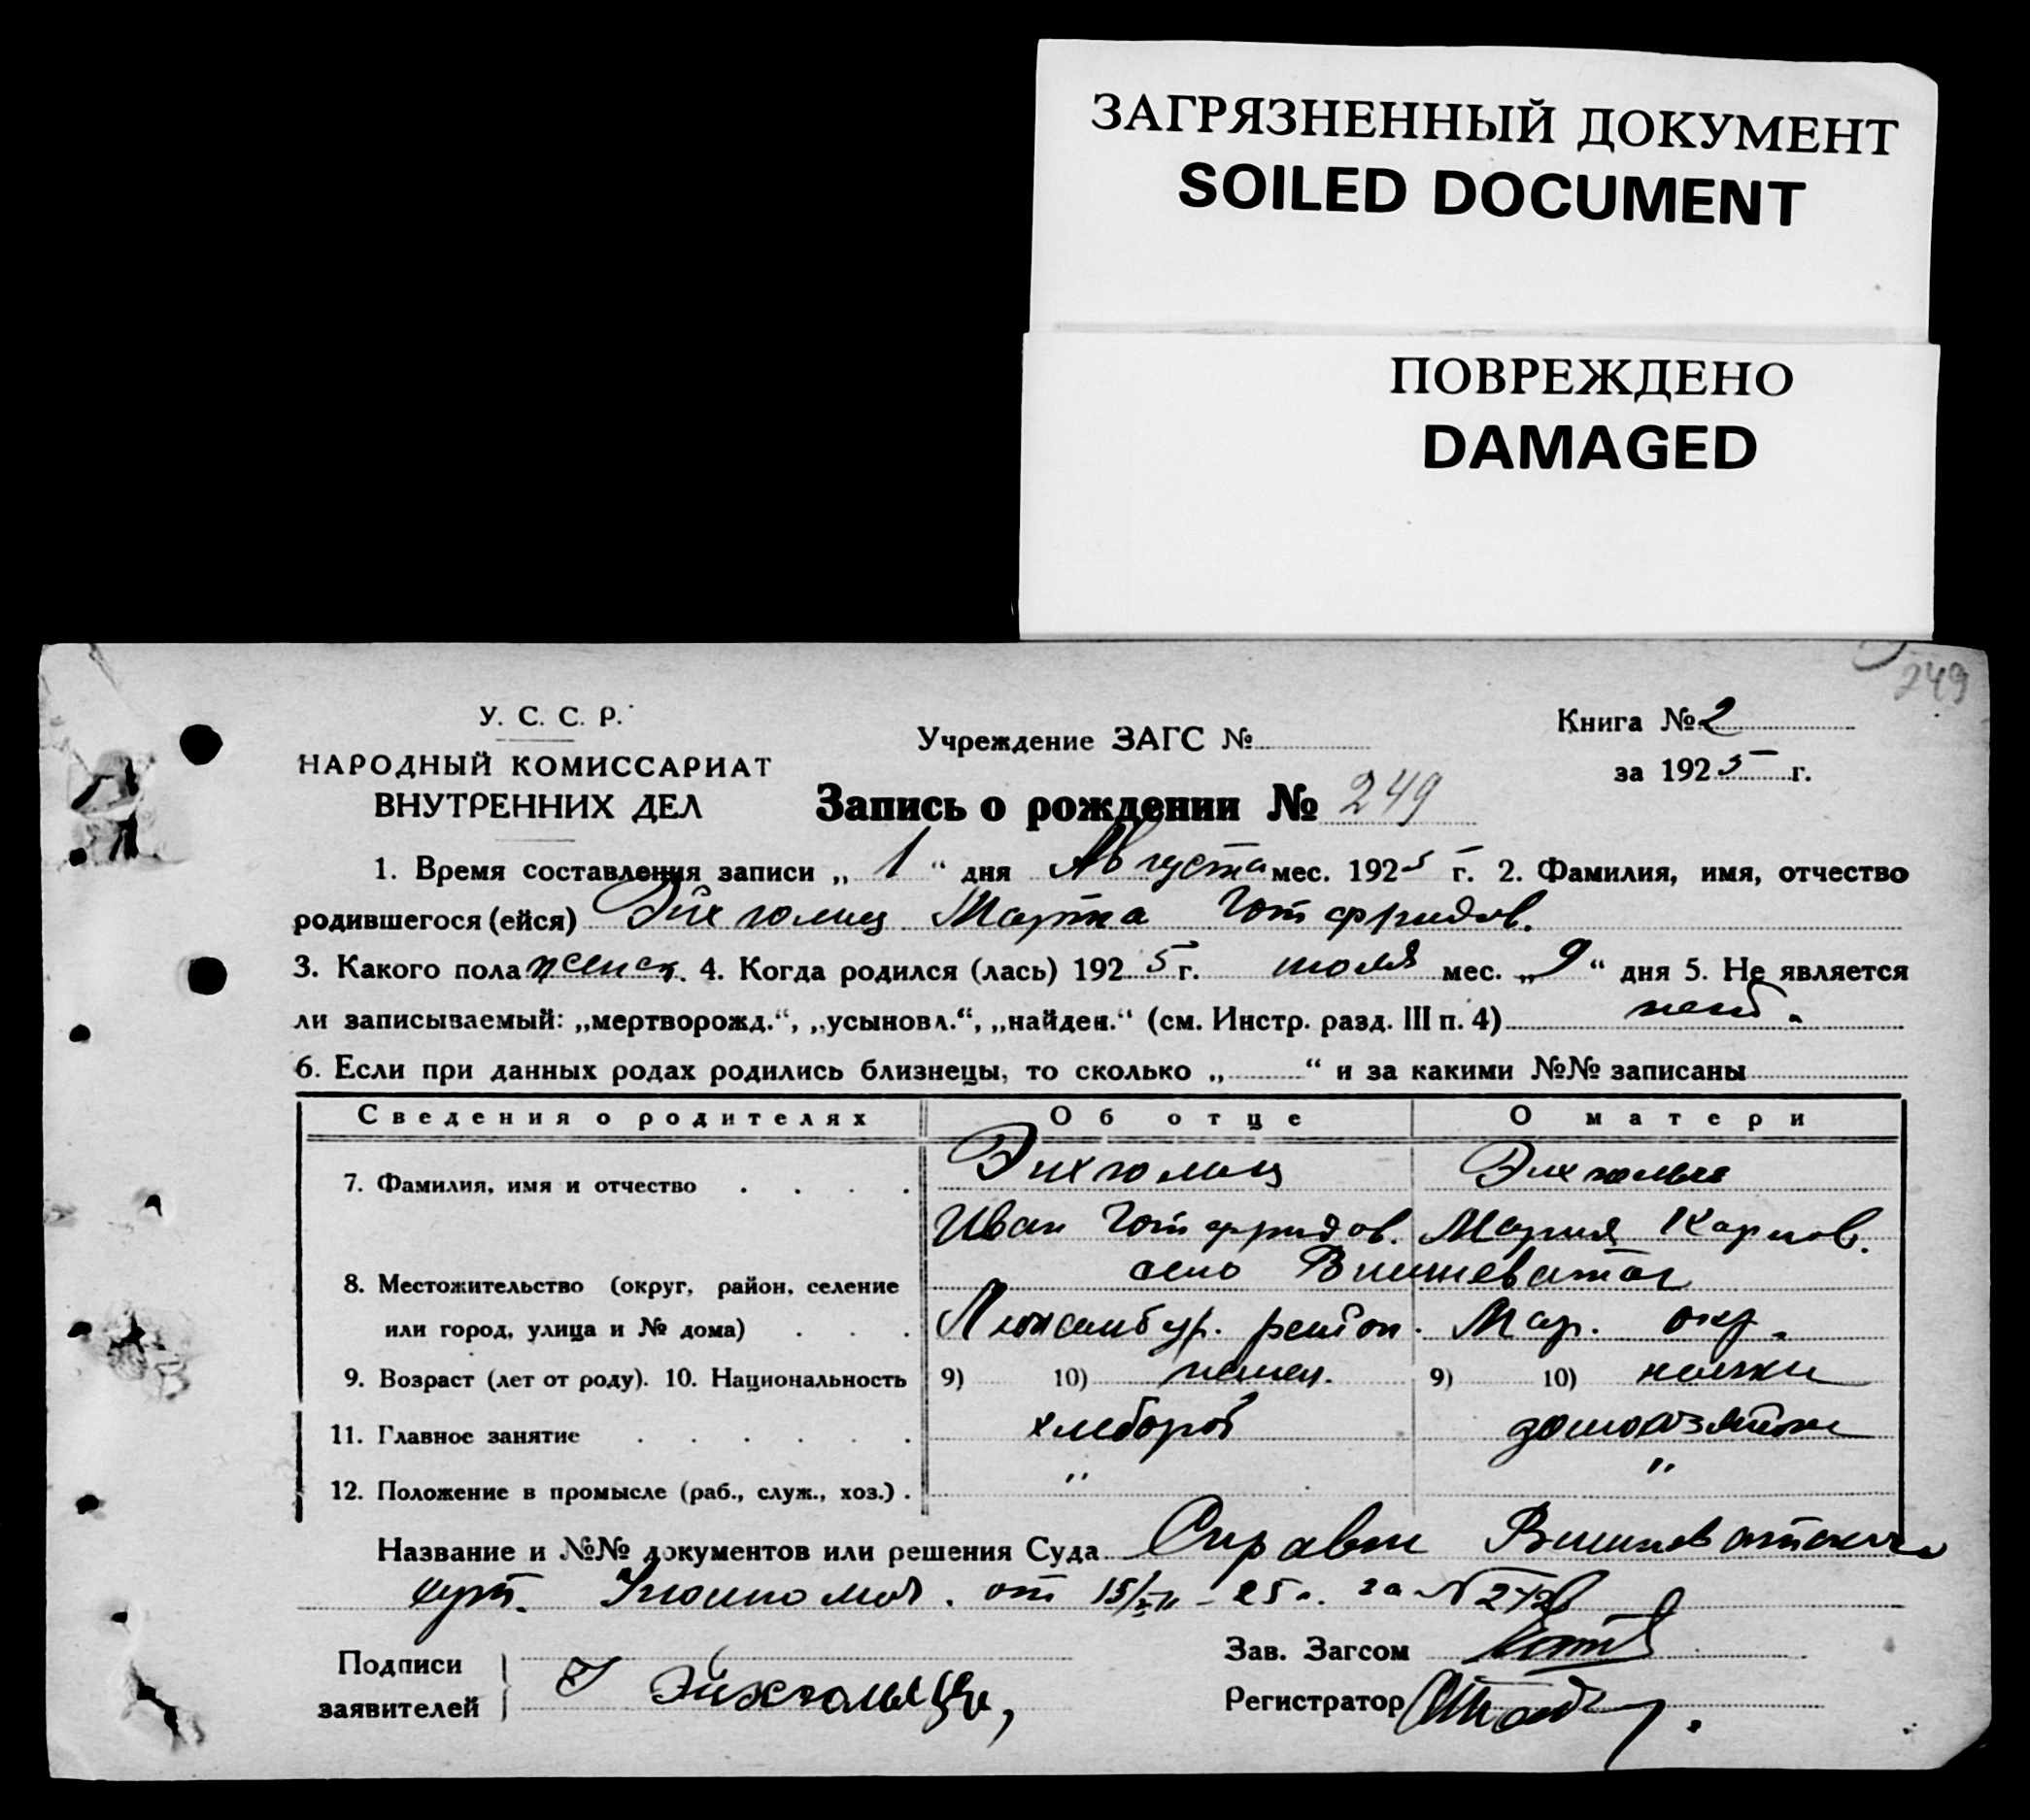 ЗАГРЯЗНЕННЫЙ ДОКУМЕНТ
SOILED DOCUMENT
ПОВРЕЖДЕНО
DAMAGED
249
У. С. С. Р.
НАРОДНЫЙ КОМИССАРИАТ
ВНУТРЕННИХ ДЕЛ
Учреждение ЗАГС №
Книга № 2
за 1925 г.
Запись о рождении № 249
1. Время составления записи „ 1 “ дня Августа мес. 1925 г. 2. Фамилия, имя, отчество
родившегося (ейся) Эйхгольц Марта Готфридов.
3. Какого пола женск. 4. Когда родился (лась) 1925 г. июля мес. „ 9 “ дня 5. Не является
ли записываемый: „мертворожд.“, „усыновл.“, „найден.“ (см. Инстр. разд. III п. 4) нет.
6. Если при данных родах родились близнецы, то сколько „ “ и за какими №№ записаны
Сведения о родителях Об отце О матери
7. Фамилия, имя и отчество Эихгольц Эихгольц
Иван Готфридов. Мария Карлов.
8. Местожительство (округ, район, селение село Вишневатое
или город, улица и № дома) Люксембур. район. Мар. окр.
9. Возраст (лет от роду). 10. Национальность 9) 10) немец. 9) 10) немки
11. Главное занятие хлебороб домохозяйка
12. Положение в промысле (раб., служ., хоз.) . " "
Название и №№ документов или решения Суда Справки Вишневатского
от 15/VII - 25 г. за №
Подписи
заявителей
Эйхгольц
Зав. Загсом
Регистратор